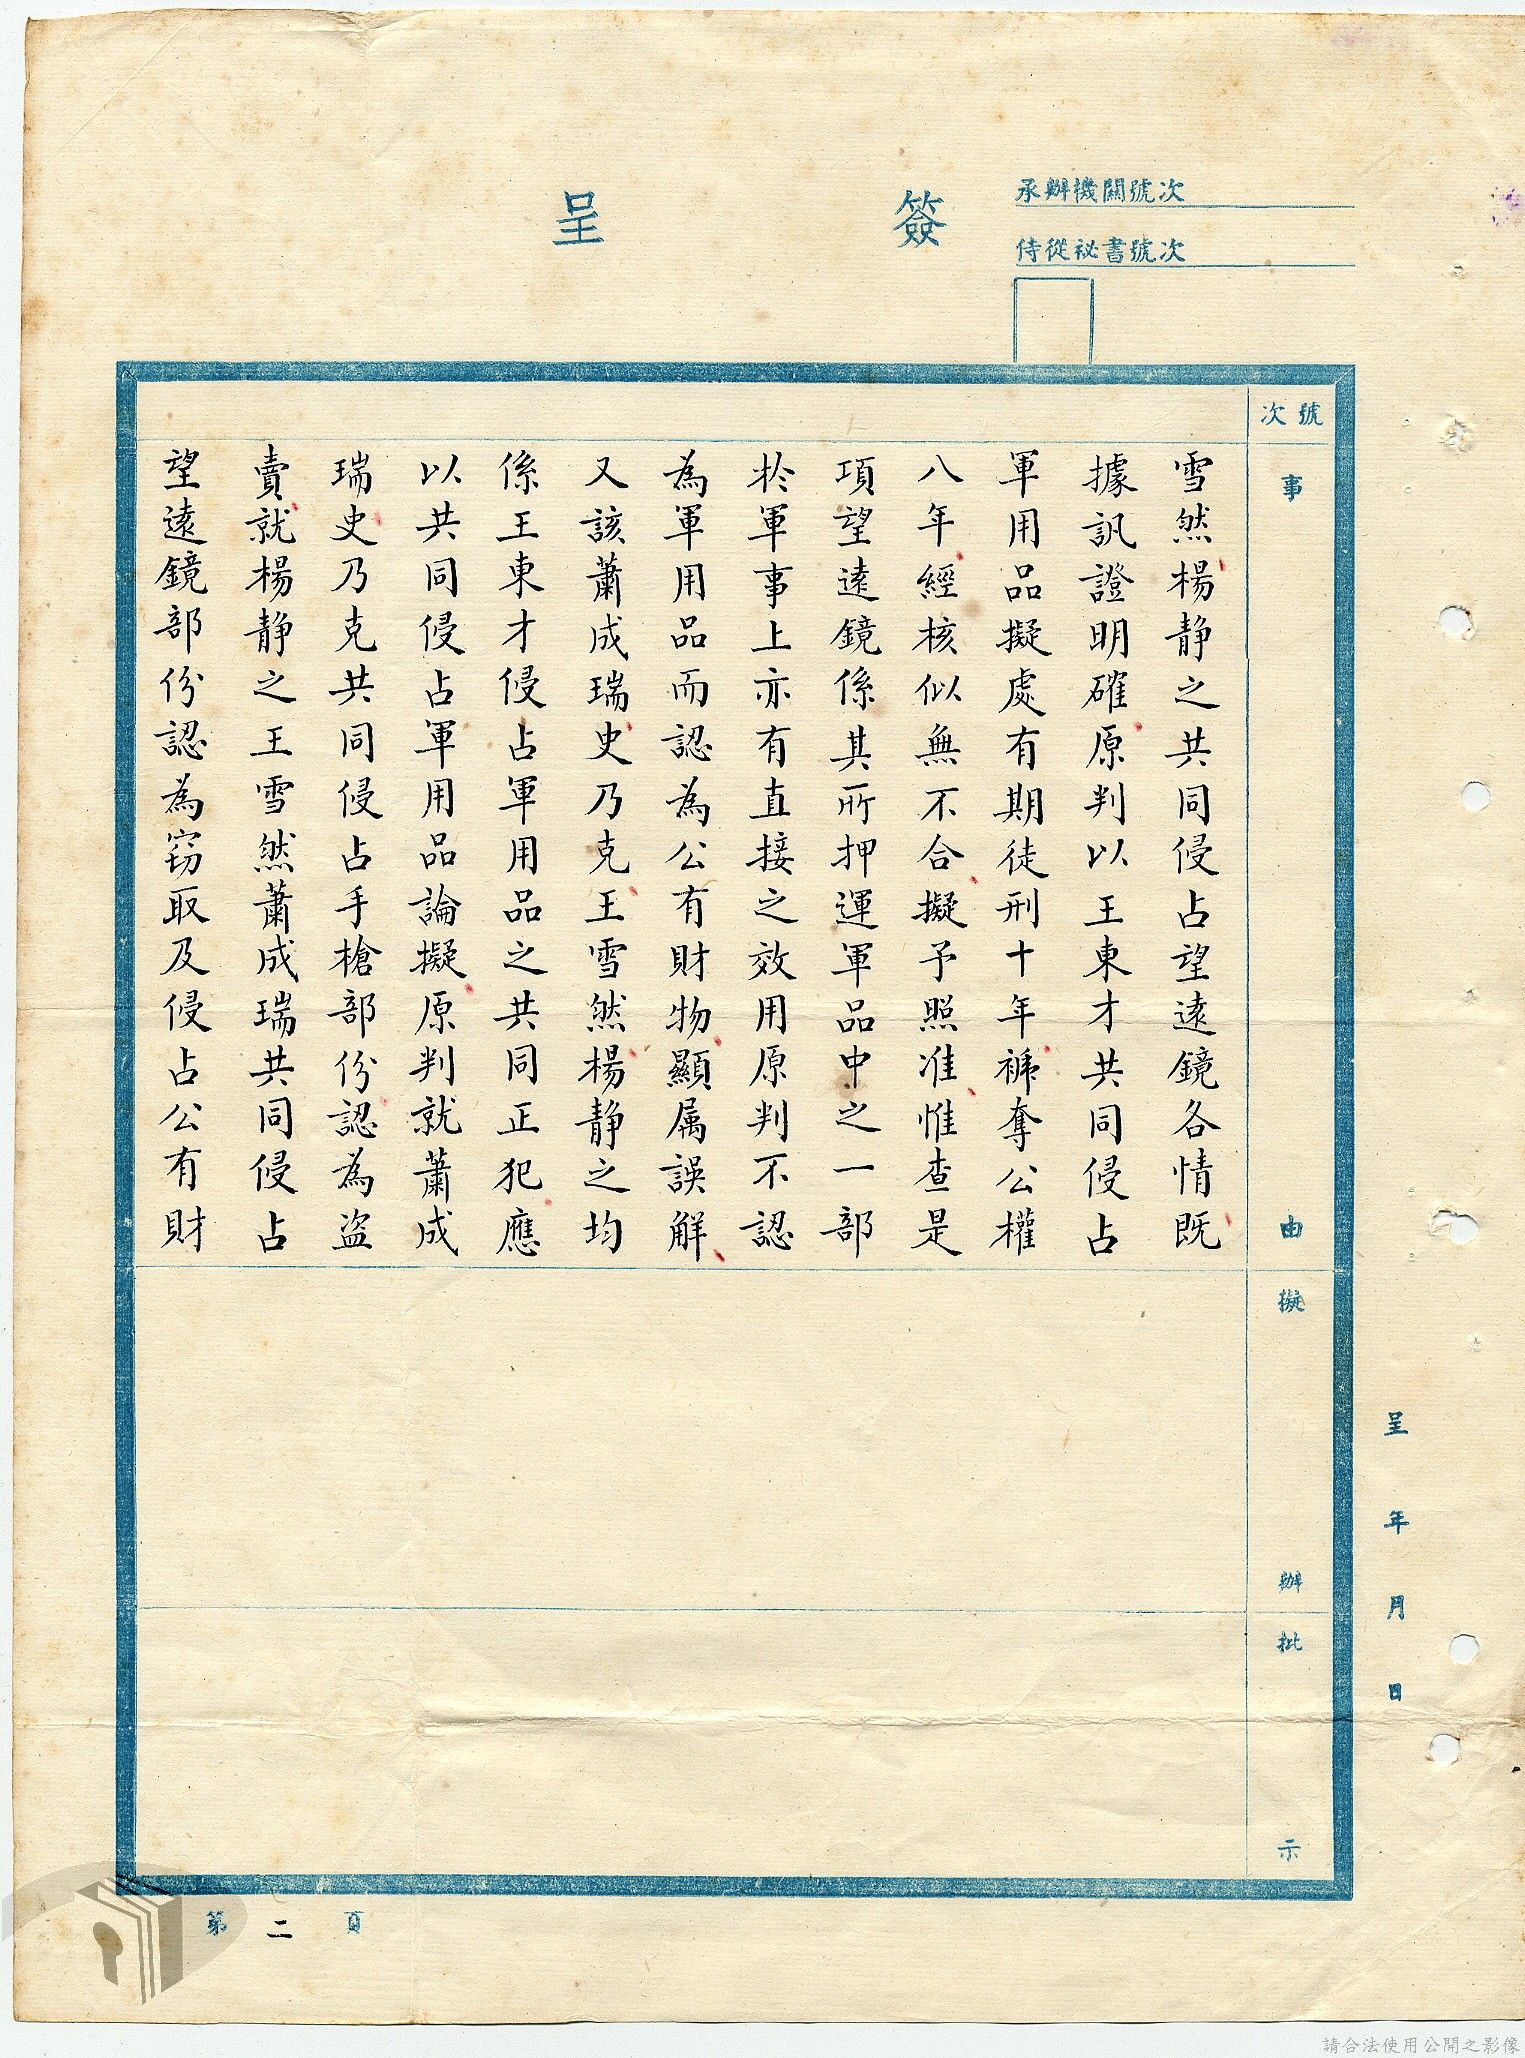 簽呈
承辦機關號次
侍從祕書號次
號次
事由
擬辦
批示
雪然楊静之共同侵占望遠鏡各情既
據訊證明確原判以王東才共同侵占
軍用品擬處有期徒刑十年褫奪公權
八年經核似無不合擬予照准惟查是
項望遠鏡係其所押運軍品中之一部
於軍事上亦有直接之效用原判不認
為軍用品而認為公有財物顯属誤解
又該蕭成瑞史乃克王雪然楊静之均
係王東才侵占軍用品之共同正犯應
以共同侵占軍用品論擬原判就蕭成
瑞史乃克共同侵占手槍部份認為盜
賣就楊静之王雪然蕭成瑞共同侵占
望遠鏡部份認為竊取及侵占公有財
呈 年 月 日
第二頁
請合法使用公開之影像